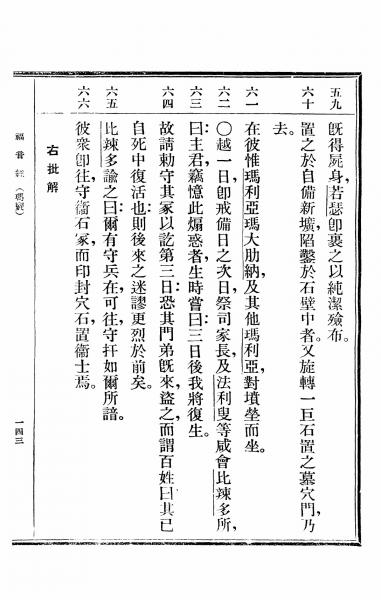 五九 旣得屍身,若瑟卽裹之以純潔殮布。
六十 置之於自備新壙,陷鑿於石壁中者。又旋轉一巨石置之墓穴門,乃
去。
六一 在彼惟瑪利亞瑪大肋納,及其他瑪利亞,對墳塋而坐。
六二 〇越一日,卽戒備日之次日,祭司家長,及法利叟等,咸會比辣多所,
六三 曰:主君,竊憶此煽惑者生時嘗曰:三日後我將復生。
六四 故請勅守其冢,以訖第三日,恐其門弟旣來,盜之,而謂百姓曰,其已
自死中復活也,則後來之迷謬更烈於前矣。
六五 比辣多諭之曰:爾有守兵在,可往守扞如爾所諳。
六六 彼衆卽往,守衞石冢,而印封穴石,置衞士焉。
右批解
福音經(瑪竇)
一四三